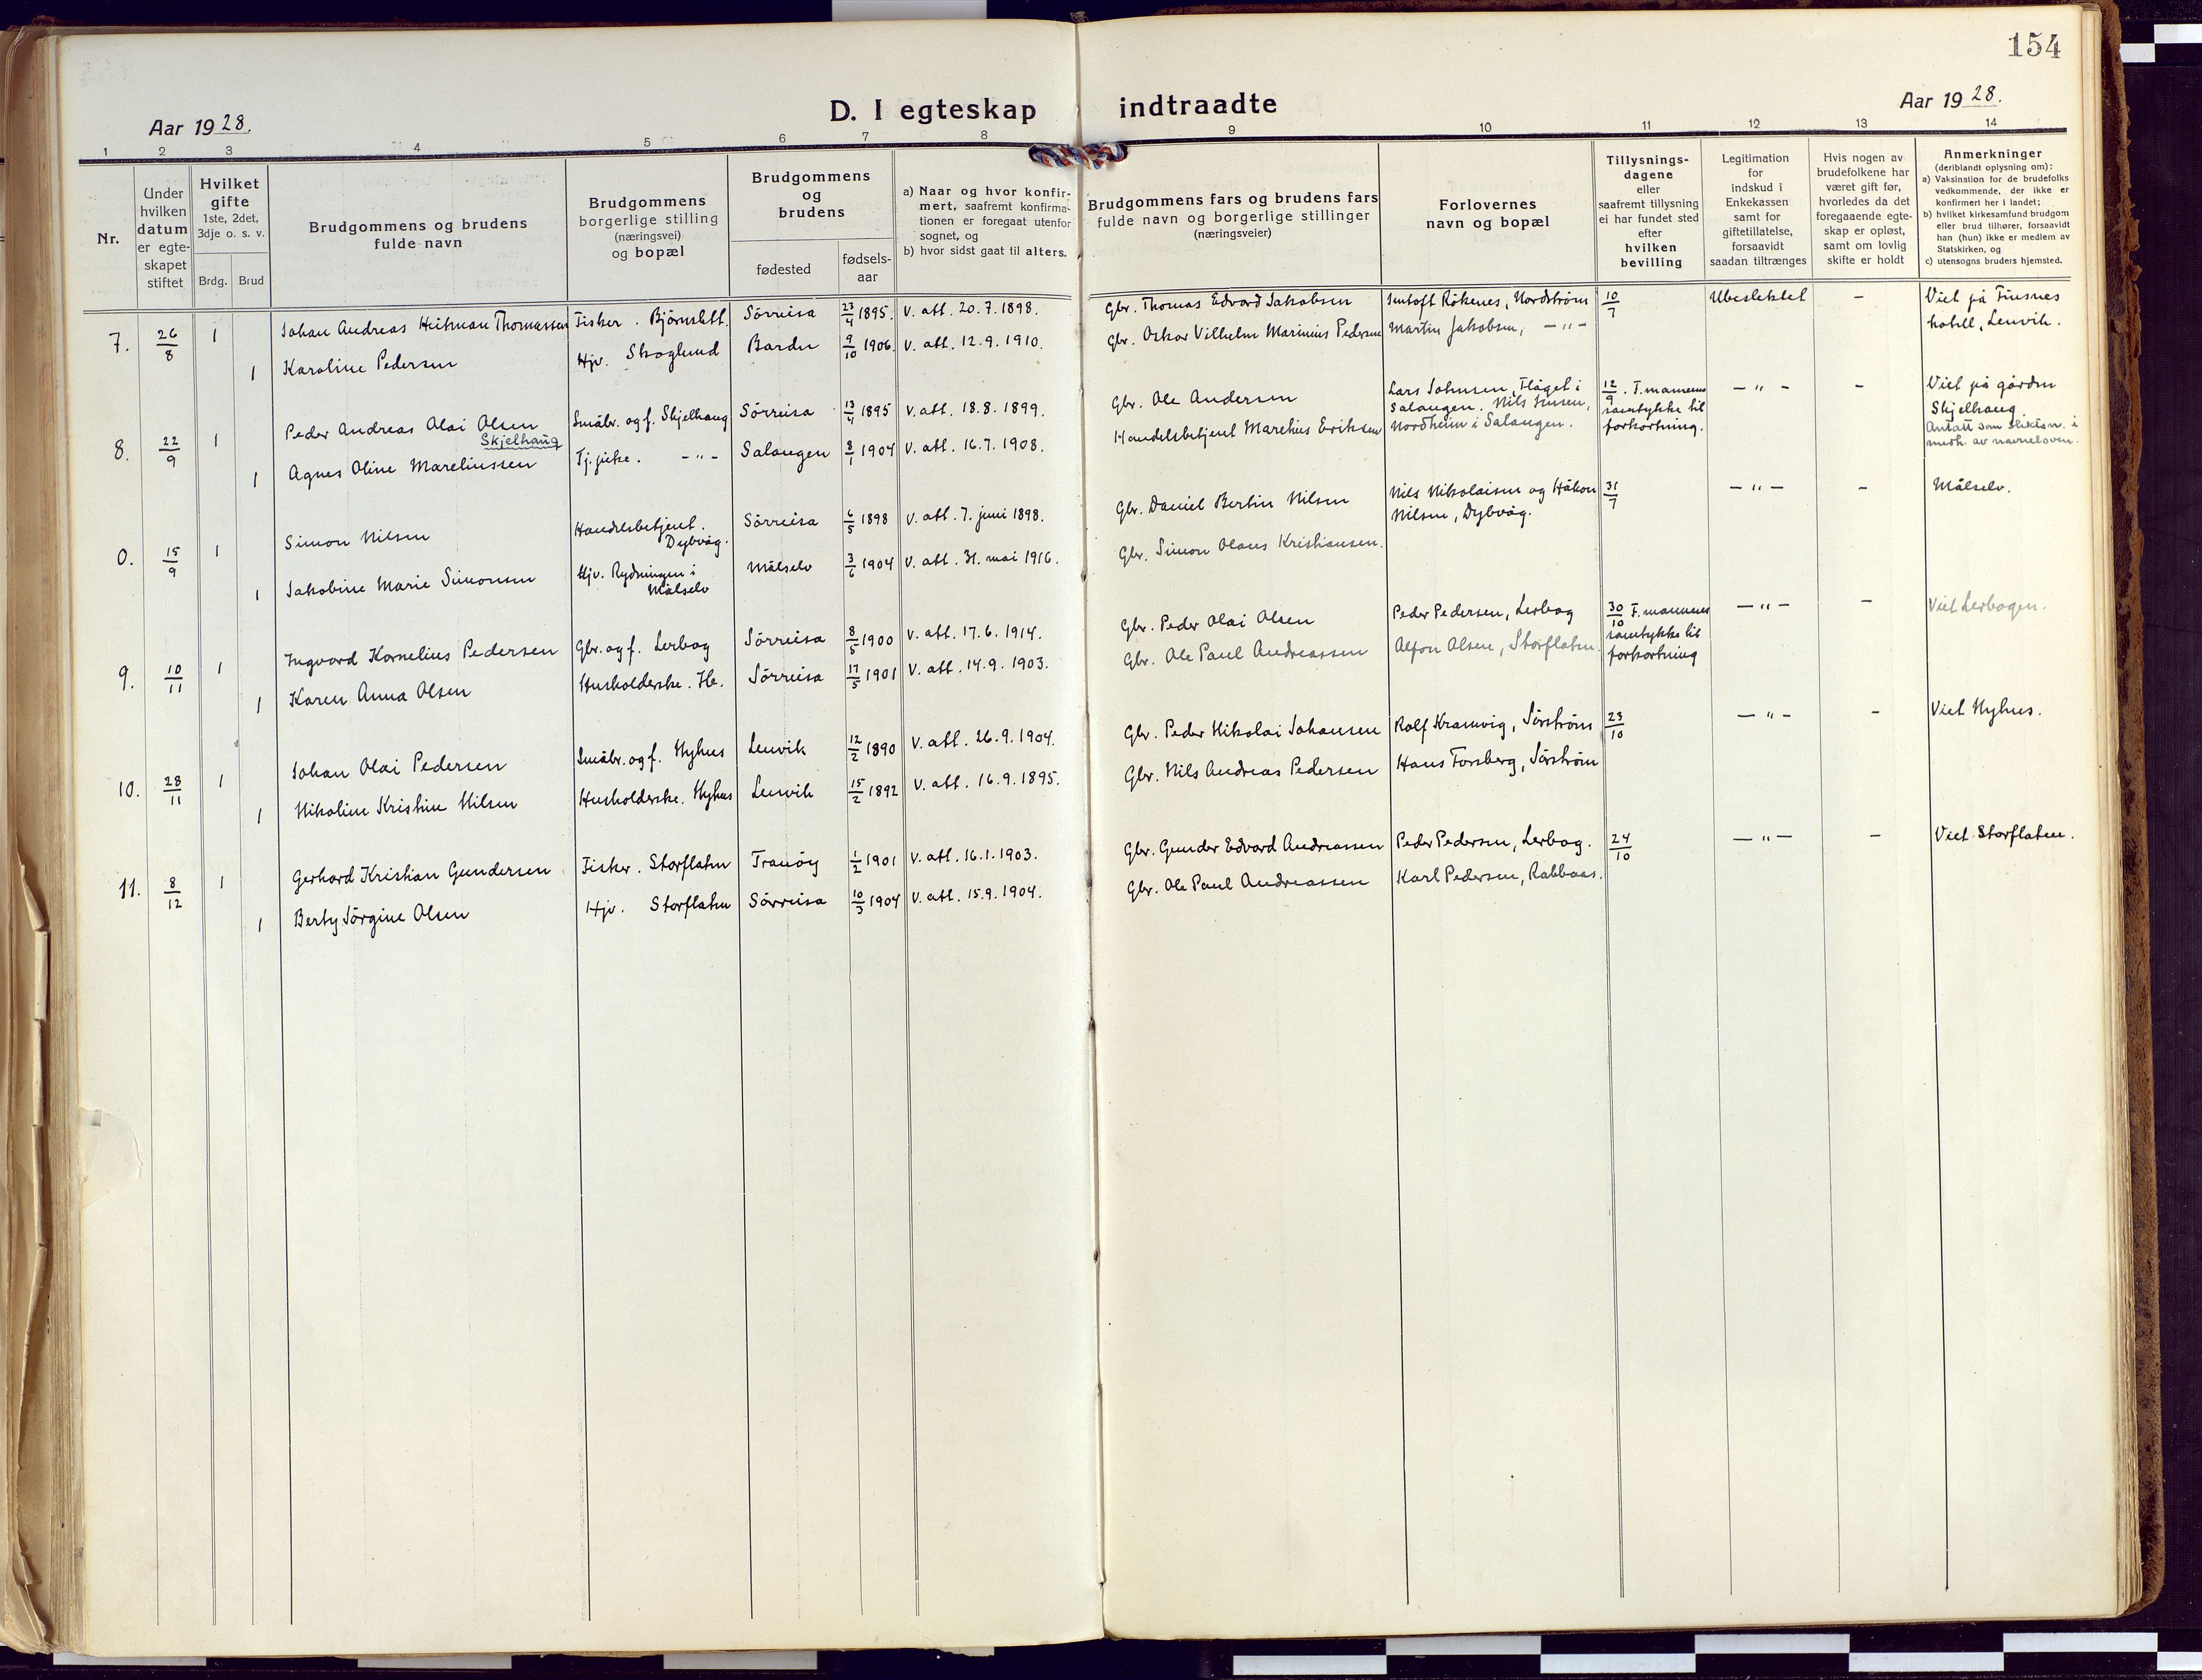 154
D. I egteskap indtraadte
Aar 1928.
Aar 1928.
1 2 3 4 5 6 7 8 9 10 11 12 13 14
Nr.
Under hvilken datum er egteskapet stiftet
Hvilket gifte
1ste, 2det, 3dje o. s. v.
Brdg. Brud
Brudgommens og brudens fulde navn
Brudgommens borgerlige stilling (næringsvei) og bopæl
Brudgommens og brudens
fødested
fødselsaar
a) Naar og hvor konfirmert, saafremt konfirmationen er foregaat utenfor sognet, og
b) hvor sidst gaat til alters.
Brudgommens fars og brudens fars fulde navn og borgerlige stillinger (næringsveier)
Forlovernes navn og bopæl
Tillysningsdagene eller saafremt tillysning ei har fundet sted efter hvilken bevilling
Legitimation for indskud i Enkekassen samt for giftetillatelse, forsaavidt saadan tiltrænges
Hvis nogen av brudefolkene har været gift før, hvorledes da det foregaaende egteskap er opløst, samt om lovlig skifte er holdt
Anmerkninger
(deriblandt oplysning om):
a) Vaksination for de brudefolks vedkommende, der ikke er konfirmert her i landet;
b) hvilket kirkesamfund brudgom eller brud tilhører, forsaavidt han (hun) ikke er medlem av Statskirken, og
c) utensogns bruders hjemsted.
7. 26/8 1 Johan Andreas Heitman Thomassen Fisker. Bjórnslett. Sórreisa 23/4 1895. v. att. 20.7.1898. Gbr. Thomas Edvard Jakobsen Rókenes, Nordstróm 10/7 Ubeslektet – Viet på Finsnes hotell, Lenvik.
1 Karoline Pedersen Hjv. Skoglund Bardu 9/10 1906. v. att. 12.9.1910. Gbr. Oskar Vilhelm Marinius Pedersen Martin Jakobsen, – " –
8. 22/9 1 Peder Andreas Olai Olsen Skjelhaug Småbr. og f. Skjelhaug Sórreisa 13/4 1895 v. att. 18.8.1899. Gbr. Ole Andersen Lars Johnsen, Flåget i Salangen. Nils Jensen, Nordheim i Salangen. 12/9. F. mannens samtykke til forkortning. – " – – Viet på gården Skjelhaug.
Antatt som slektsn. i medh. av navneloven.
1 Agnes Oline Mareliussen Tj.pike. – " – Salangen 8/1 1904 v. att. 16.7.1908. Handelsbetjent Marelius Eriksen
0. 15/9 1 Simon Nilsen Handelsbetjent. Dybvåg. Sórreisa 6/5 1898 v. att. 7. juni 1898. Gbr. Daniel Bertin Nilsen Nils Nikolaisen og Håkon Nilsen, Dybvåg. 31/7 – " – – Målselv.
1 Jakobine Marie Simonsen Hjv. Rydningen i Målselv Målselv 3/6 1904 v. att. 31. mai 1916. Gbr. Simon Olaus Kristiansen.
9. 10/11 1 Ingvard Kornelius Pedersen Gbr. og f. Lerbog Sórreisa 8/5 1900 v. att. 17.6.1914. Gbr. Peder Olai Olsen Peder Pedersen, Lerbog 30/10 F. mannens samtykke til forkortning – " – – Viet Lerbogen.
1 Karen Anna Olsen Husholderske. Hr. Sórreisa 17/5 1901 v. att. 14.9.1903. Gbr. Ole Paul Andreassen Alfon Olsen, Storflaten.
10. 28/11 1 Johan Olai Pedersen Småbr. og f. Nyhus Lenvik 12/2 1890 v. att. 26.9.1904. Gbr. Peder Nikolai Johansen Rolf Kramvig, Sórstróm 23/10 – " – – Viet Nyhus.
1 Nikoline Kristine Nilsen Husholderske. Nyhus Lenvik 15/2 1892 v. att. 16.9.1895. Gbr. Nils Andreas Pedersen Hans Forsberg, Sórstróm
11. 8/12 1 Gerhard Kristian Gundersen Fisker. Storflaten Tranóy 1/2 1901 v. att. 16.1.1903. Gbr. Gunder Edvard Andreassen Peder Pedersen, Lerbog. 24/10 – " – – Viet Storflaten.
1 Berty Jórgine Olsen Hjv. Storflaten Sórreisa 10/3 1904 v. att. 15.9.1904. Gbr. Ole Paul Andreassen Karl Pedersen, Rabbaas.